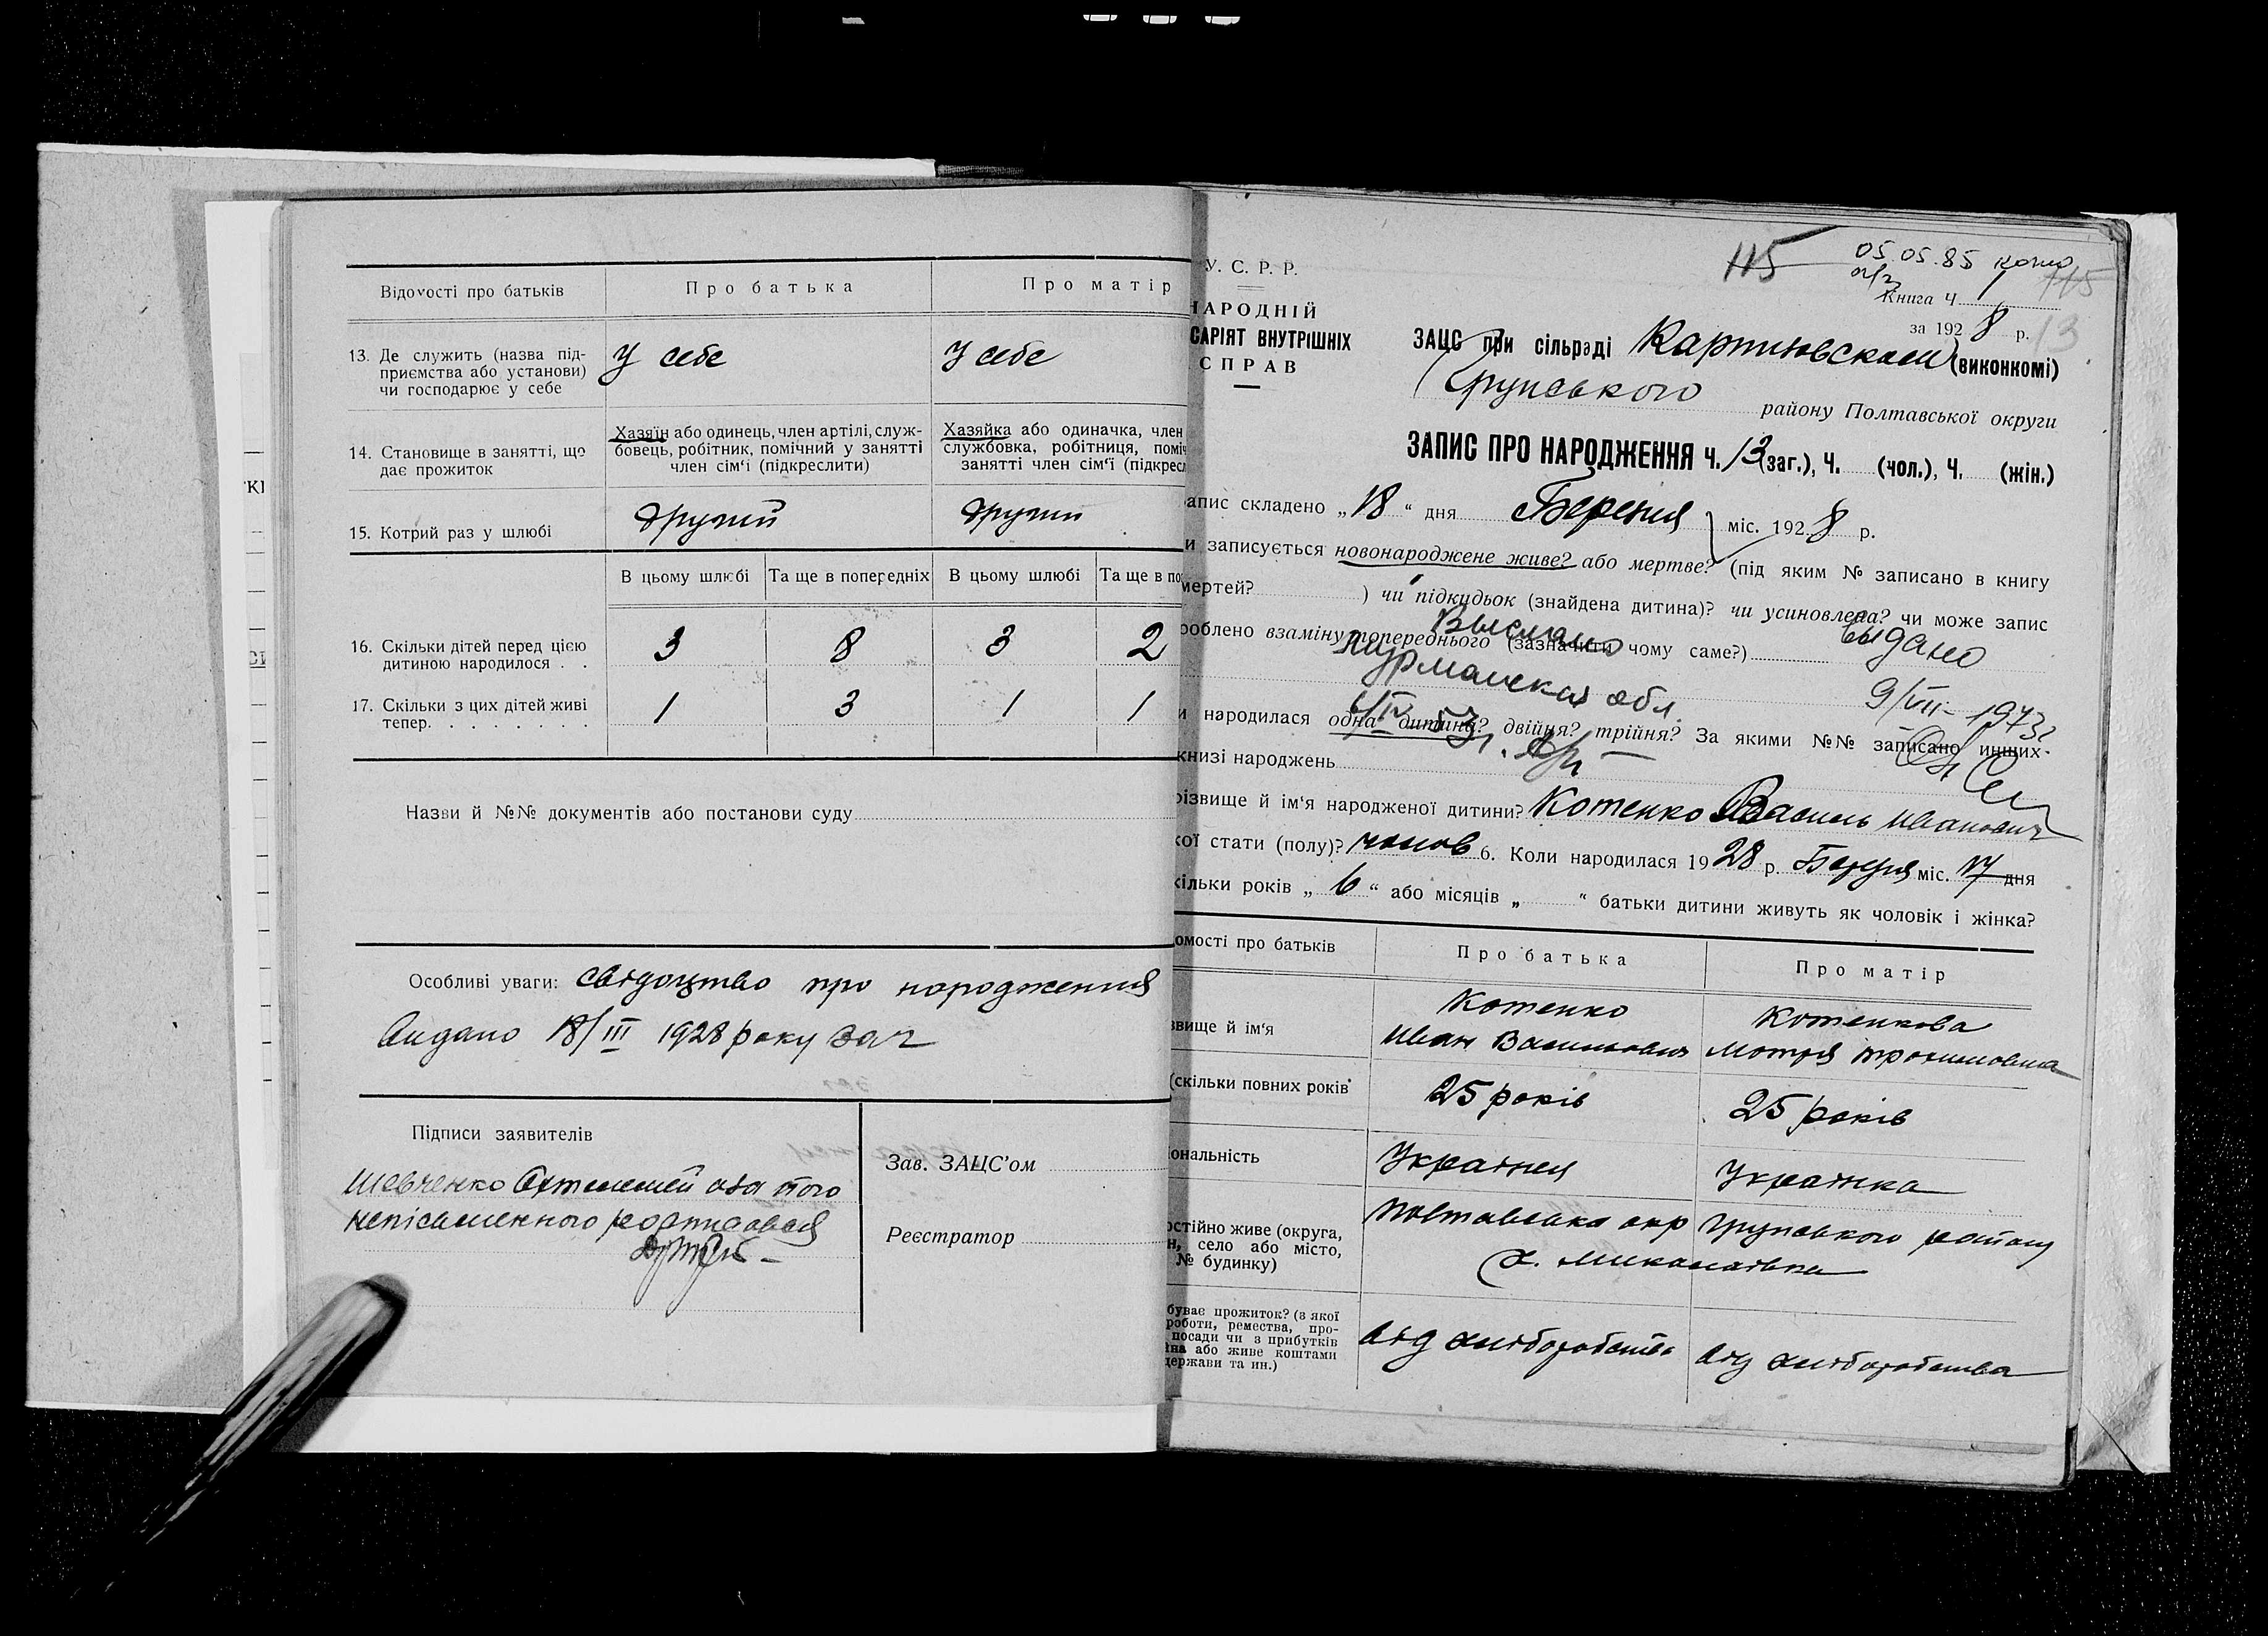 Відомості про батьків
Про батька
Про матір
13. Де служить (назва під-
приємства або установи)
чи господарює у себе
У себе
У себе
14. Становище в занятті, що
дає прожиток
Хазяїн або одинець, член артілі, служ-
бовець, робітник, помічний у занятті
член сім'ї (підкреслити)
Хазяйка або одиначка, член
службовка, робітниця, поміч
занятті член сім'ї (підкресл
15. Котрий раз у шлюбі
другий
другий
В цьому шлюбі
Та ще в попередніх
В цьому шлюбі
Та ще в по
16. Скільки дітей перед цією
дитиною народилося . .
3
8
3
2
17. Скільки з цих дітей живі
тепер. . . . . . . .
1
3
1
1
Назви й №№ документів або постанови суду
Особливі уваги: свідоцтво про народження
видано 18/III 1928 року за №
Підписи заявителів
Шевченко
неписьменного розписався
Зав. ЗАЦС'ом
Реєстратор
115
05.05.85
115
Книга Ч. 1
за 1928 р.
13
У. С. Р. Р.
НАРОДНІЙ
САРІЯТ ВНУТРІШНІХ
СПРАВ
ЗАЦС при сільраді (виконкомі)
Грунського
району Полтавської округи
ЗАПИС ПРО НАРОДЖЕННЯ Ч. 13 (заг.), Ч. (чол.), Ч. (жін.)
апис складено „18“ дня Березня міс. 1928 р.
и записується новонароджене живе? або мертве? (під яким № записано в книгу
мертей? ) чи підкидьок (знайдена дитина)? чи усиновлена? чи може запис
роблено взаміну попереднього (зазначити чому саме?)
Выслано
Мурманская обл.
6/IV 53 г.
выдано
9/VII-1973г
и народилася одна дитина? двійня? трійня? За якими №№ записано инших
книзі народжень
різвище й ім'я народженої дитини? Котенко Василь Иванович
кої стати (полу)? чолов 6. Коли народилася 1928 р. Березня міс. 17 дня
кільки років „6“ або місяців „ “ батьки дитини живуть як чоловік і жінка?
омості про батьків
Про батька
Про матір
звище й ім'я
Котенко
Иван Васильович
Котенкова
Мотря Трохимовна
(скільки повних років
25 років
25 років
ональність
Українец
Українка
остійно живе (округа,
н, село або місто,
№ будинку)
Полтавська окр Грунського району
х. Миколаївка
буває прожиток? (з якої
роботи, ремества, про-
посади чи з прибутків
їна або живе коштами
держави та ин.)
від хліборобства
від хліборобства